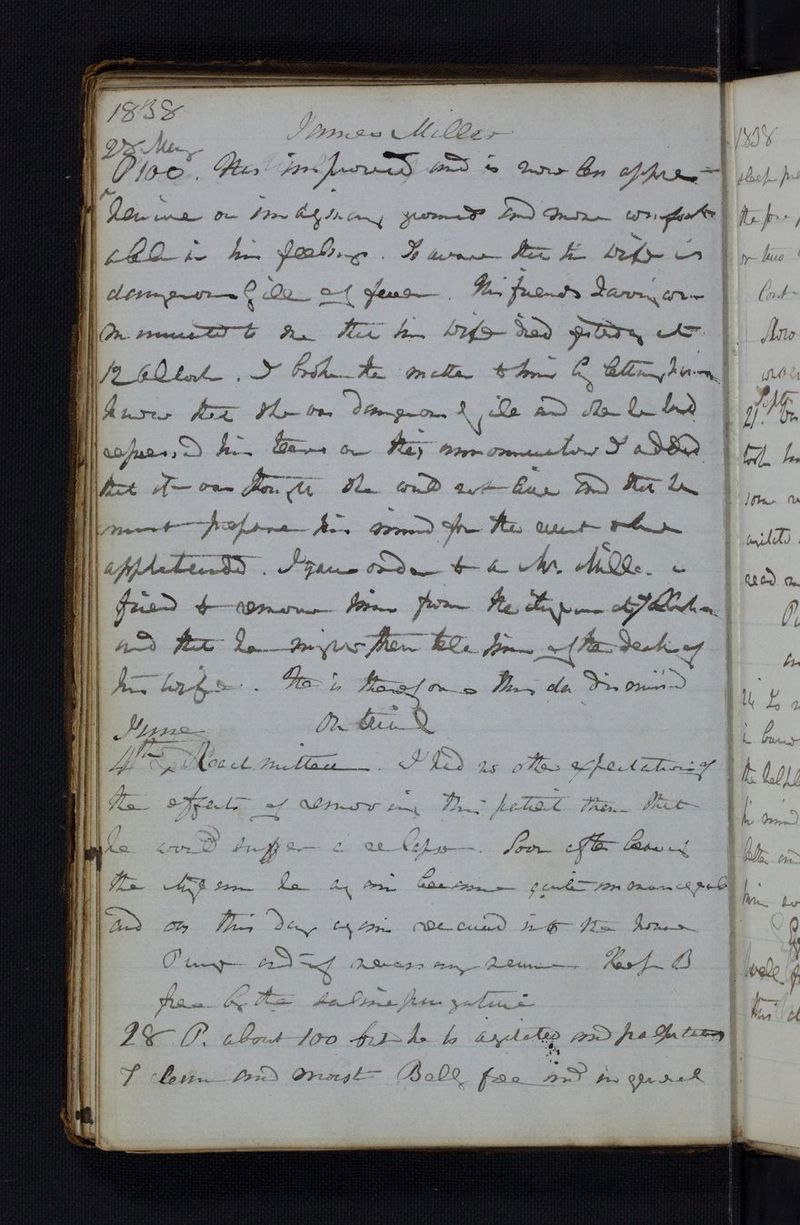 1838
James Miller
28 May
P 100. Has improved and is now less appre-
hensive on imaginary grounds and more comfort
able in his feelings. Is aware that his wife is
dangerously ill of fever. His friends having com
municated to me that his wife died yesterday at
12 oClock. I broke the matter to him by letting him
know that she was dangerously ile and when he had
repressed his tears on this announcement I added
that it was thought she could not live and that he
must prepare his mind for the event when
apprehended. I gave orders to a Mr. Miller a
friend to remove him from the asylum at 7 oClock
and that he might then tell him of the death of
his wife. He is therefore this day dismissed
On trial
June
4th Readmitted. I had no other expectation of
the effects of removing this patient than that
he would suffer a relapse. Soon after leaving
the asylum he again became quite unmanageable
and on this day again received into the house
and if necessary renew Keep B
free by the saline purgative
28 P. about 100 but he is agitated and palpitates
T clean and moist Belly free and in general
1838
sleep
the
or two
Sept
21.
took
some
read
24
in
the
in mind
him
well
this